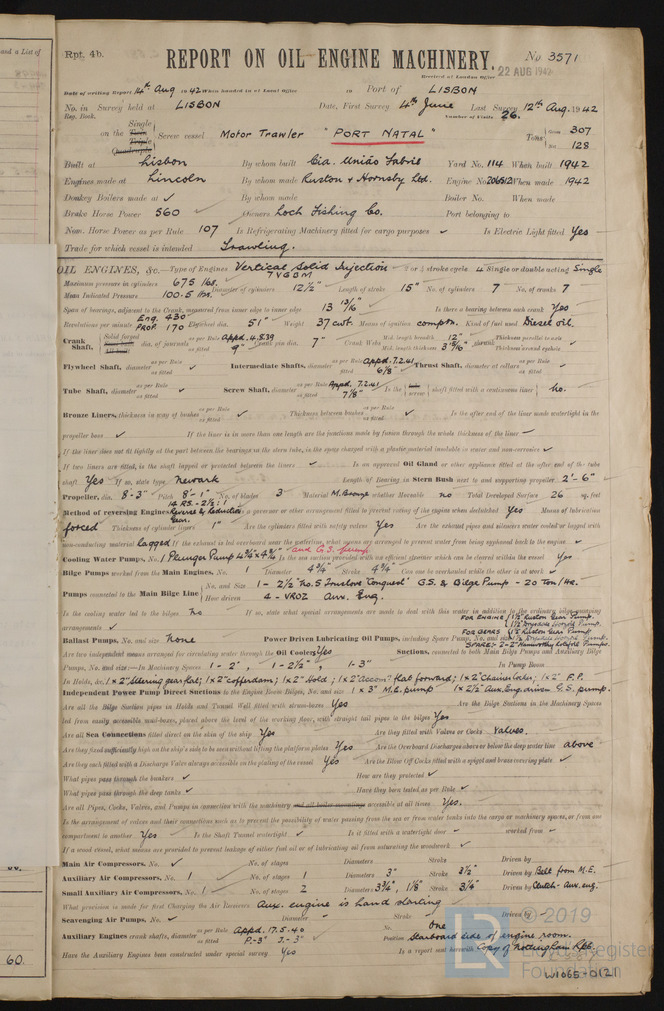 and a List of
Rpt. 4b.
REPORT ON OIL ENGINE MACHINERY.
No 3571
Received at London Office 22 AUG 1942
Date of writing Report 14th Aug 1942 When handed in at Local Office in Port of LISBON
No. in Survey held at LISBON Date, First Survey 4th June Last Survey 12th Aug. 1942
Reg. Book. Number of Visits 26.
Single
on the Twin Screw vessel Motor Trawler "PORT NATAL" Tons Gross 307
Triple
Quadruple Net 128
Built at Lisbon By whom built Cia. União Fabril Yard No. 114 When built 1942
Engines made at Lincoln By whom made Ruston & Hornsby Ltd. Engine No. 206512 When made 1942
Donkey Boilers made at ✓ By whom made Boiler No. When made
Brake Horse Power 560 Owners Loch Fishing Co. Port belonging to
Nom. Horse Power as per Rule 107 Is Refrigerating Machinery fitted for cargo purposes ✓ Is Electric Light fitted Yes
Trade for which vessel is intended Trawling.
OIL ENGINES, &c.—Type of Engines Vertical Solid Injection 2 or 4 stroke cycle 4 Single or double acting Single
7 VGBM
Maximum pressure in cylinders 675 lbs. Diameter of cylinders 12½" Length of stroke 15" No. of cylinders 7 No. of cranks 7
Mean Indicated Pressure 100.5 lbs.
Span of bearings, adjacent to the Crank, measured from inner edge to inner edge 13 13/16" Is there a bearing between each crank Yes
Revolutions per minute Eng. 430 PROP. 170 Flywheel dia. 51" Weight 37 cwt. Means of ignition compton. Kind of fuel used Diesel oil.
Crank Shaft, Solid forged dia. of journals as per Rule Appd. 4.5.39 as fitted 9" Crank pin dia. 7" Crank Webs Mid. length breadth 12" Mid. length thickness 3 5/16" shrunk Thickness parallel to axis Thickness around eyehole
Flywheel Shaft, diameter as per Rule as fitted ✓ Intermediate Shafts, diameter as per Rule Appd. 7.2.41 as fitted 6 1/8" Thrust Shaft, diameter at collars as per Rule as fitted ✓
Tube Shaft, diameter as per Rule as fitted ✓ Screw Shaft, diameter as per Rule Appd. 7.2.41 as fitted 7 1/8" Is the screw shaft fitted with a continuous liner No.
Bronze Liners, thickness in way of bushes as per Rule as fitted ✓ Thickness between bushes as per Rule as fitted ✓ Is the after end of the liner made watertight in the
propeller boss ✓ If the liner is in more than one length are the junctions made by fusion through the whole thickness of the liner
If the liner does not fit tightly at the part between the bearings in the stern tube, is the space charged with a plastic material insoluble in water and non-corrosive ✓
If two liners are fitted, is the shaft lapped or protected between the liners ✓ Is an approved Oil Gland or other appliance fitted at the after end of the tube
shaft Yes If so, state type Newark Length of Bearing in Stern Bush next to and supporting propeller 2'-6"
Propeller, dia. 8'-3" Pitch 8'-1" No. of blades 3 Material M. Bronze whether Moveable no Total Developed Surface 26 sq. feet
Method of reversing Engines Reverse & Reduction Gear. Is a governor or other arrangement fitted to prevent racing of the engine when declutched Yes Means of lubrication
forced Thickness of cylinder liners 1" Are the cylinders fitted with safety valves Yes Are the exhaust pipes and silencers water cooled or lagged with
non-conducting material lagged If the exhaust is led overboard near the waterline, what means are arranged to prevent water from being syphoned back to the engine ✓
Cooling Water Pumps, No. 1 Plunger Pump 4¾" x 4¾" and G.S. pump Is the sea suction provided with an efficient strainer which can be cleared within the vessel Yes
Bilge Pumps worked from the Main Engines, No. 1 Diameter 4¾" Stroke 4¾" Can one be overhauled while the other is at work ✓
Pumps connected to the Main Bilge Line No. and Size 1 - 2½" No. 5 G.S. & Bilge Pump - 20 Ton/Hr.
How driven 4-VROZ Aux. Eng.
Is the cooling water led to the bilges No If so, state what special arrangements are made to deal with this water in addition to the ordinary bilge pumping
arrangements ✓ FOR ENGINE 1½" Ruston Gear Pump.
FOR GEARS 1½" Ruston Gear Pump
Ballast Pumps, No. and size None Power Driven Lubricating Oil Pumps, including Spare Pump, No. and size SPARE: 2-2" Hamworthy Pumps
Are two independent means arranged for circulating water through the Oil Cooler Yes Suctions, connected to both Main Bilge Pumps and Auxiliary Bilge
Pumps, No. and size:—In Machinery Spaces 1 - 2", 1 - 2½", 1 - 3" In Pump Room
In Holds, &c. 1x2" Steering gear flat; 1x2" cofferdam; 1x2" Hold; 1x2" accom. flat forward; 1x2" Chain locker; 1x2" F.P.
Independent Power Pump Direct Suctions to the Engine Room Bilges, No. and size 1 x 3" M.E. pump 1 x 2½" Aux. Eng. driven G.S. pump.
Are all the Bilge Suction pipes in Holds and Tunnel Well fitted with strum-boxes Yes Are the Bilge Suctions in the Machinery Spaces
led from easily accessible mud-boxes, placed above the level of the working floor, with straight tail pipes to the bilges Yes
Are all Sea Connections fitted direct on the skin of the ship Yes Are they fitted with Valves or Cocks Valves.
Are they fixed sufficiently high on the ship's side to be seen without lifting the platform plates Yes Are the Overboard Discharges above or below the deep water line above
Are they each fitted with a Discharge Valve always accessible on the plating of the vessel Yes Are the Blow Off Cocks fitted with a spigot and brass covering plate ✓
What pipes pass through the bunkers ✓ How are they protected ✓
What pipes pass through the deep tanks ✓ Have they been tested as per Rule ✓
Are all Pipes, Cocks, Valves, and Pumps in connection with the machinery and all boiler mountings accessible at all times Yes.
Is the arrangement of valves and their connections such as to prevent the possibility of water passing from the sea or from water tanks into the cargo or machinery spaces, or from one
compartment to another Yes Is the Shaft Tunnel watertight ✓ Is it fitted with a watertight door ✓ worked from
If a wood vessel, what means are provided to prevent leakage of either fuel oil or of lubricating oil from saturating the woodwork ✓
Main Air Compressors, No. ✓ No. of stages Diameters Stroke Driven by
Auxiliary Air Compressors, No. 1 No. of stages 1 Diameters 3" Stroke 3½" Driven by Belt from M.E.
Small Auxiliary Air Compressors, No. 1 No. of stages 2 Diameters 3¾", 1⅛" Stroke 3¼" Driven by Clutch - Aux. eng.
What provision is made for first Charging the Air Receivers Aux. engine is hand starting
Scavenging Air Pumps, No. ✓ Diameter Stroke Driven by
Auxiliary Engines crank shafts, diameter as per Rule Appd. 17.5.40 as fitted P.-3" J.-3" No. One
Position Starboard side of engine room.
Have the Auxiliary Engines been constructed under special survey Yes Is a report sent herewith Copy of Nottingham Rpt.
60.
LR © 2019
Lloyd's Register
Foundation
W1065-0121